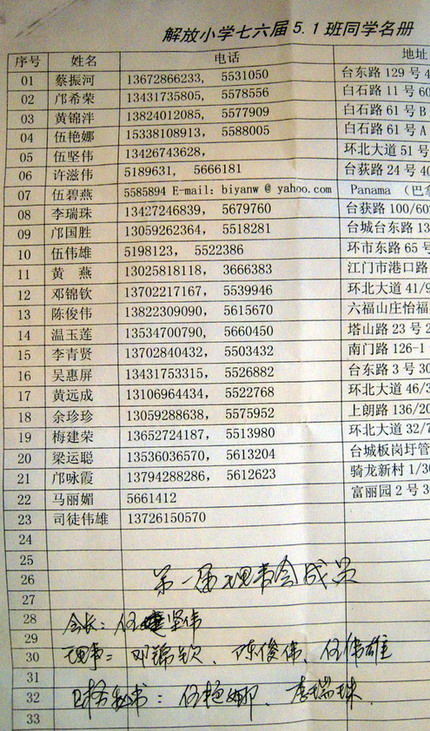 解放小学七六届5.1班同学名册
序号 姓名 电话 地址
01 蔡振河 13672866233, 5531050 台东路129号4
02 邝希荣 13431735805, 5578556 白石路11号60
03 黄锦泮 13824012085, 5577909 白石路61号B
04 伍艳娜 15338108913, 5588005 白石路61号A
05 伍坚伟 13426743628, 环北大道51号
06 许滋伟 5189631, 5666181 台荻路24号40
07 伍碧燕 5585894 E-mail: biyanw @ yahoo.com Panama (巴拿
08 李瑞珠 13427246839, 5679760 台荻路100/602
09 邝国胜 13059262364, 5518281 台城台东路13
10 伍伟雄 5198123, 5522386 环市东路65号
11 黄 燕 13025818118, 3666383 江门市港口路
12 邓锦钦 13702217167, 5539946 环北大道41/9
13 陈俊伟 13822309090, 5615670 六福山庄怡福
14 温玉莲 13534700790, 5660450 塔山路23号2
15 李青贤 13702840432, 5503432 南门路126-1
16 吴惠屏 13431753315, 5526882 台东路3号30
17 黄远成 13106964434, 5522768 环北大道46/3
18 余珍珍 13059288638, 5575952 上朗路136/20
19 梅建荣 13652724187, 5513980 环北大道32/7
20 梁运聪 13536036570, 5613204 台城板岗圩管
21 邝咏霞 13794288286, 5612623 骑龙新村1/30
22 马丽媚 5661412 富丽园2号3
23 司徒伟雄 13726150570
24
25
26 第一届理事会成员
27
28 会长：伍坚伟
29
30 理事：邓锦钦、陈俊伟、伍伟雄
31
32 秘书：伍艳娜、李瑞珠
33